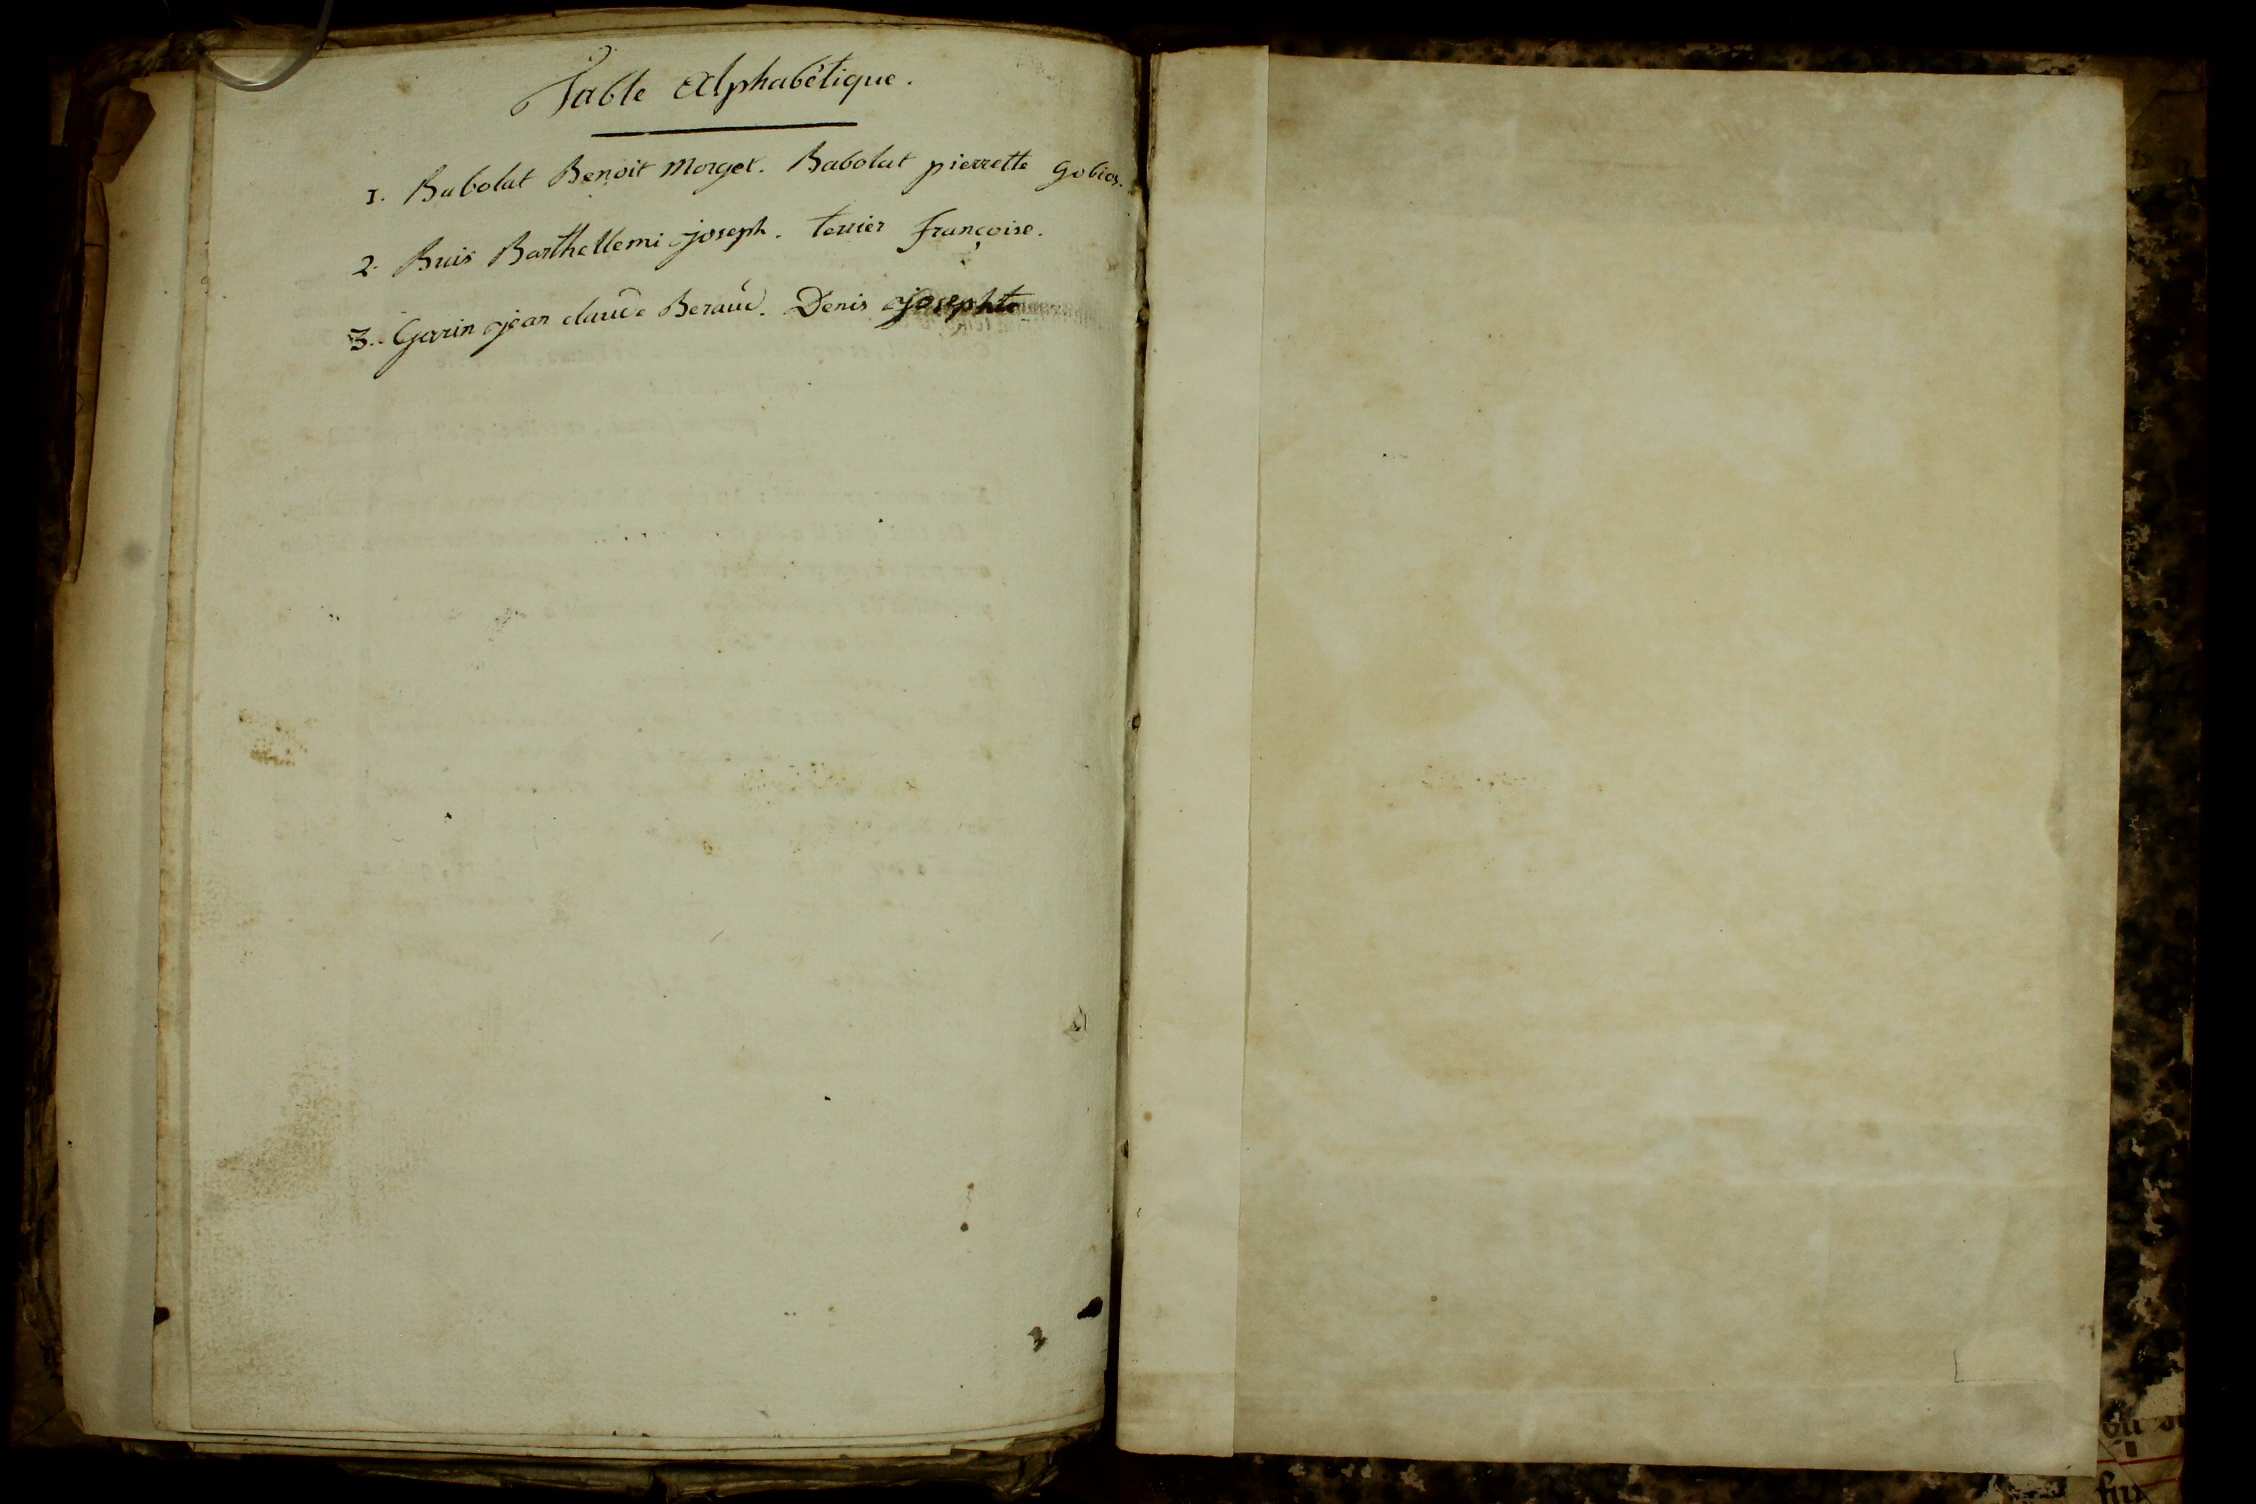 Table Alphabétique.
1. Babolat Benoit Morgel. Babolat pierrette Gobios.
2. Buis Barthellemi joseph. terrier françoise.
3. Garin jean claude Beraud. Denis josephte